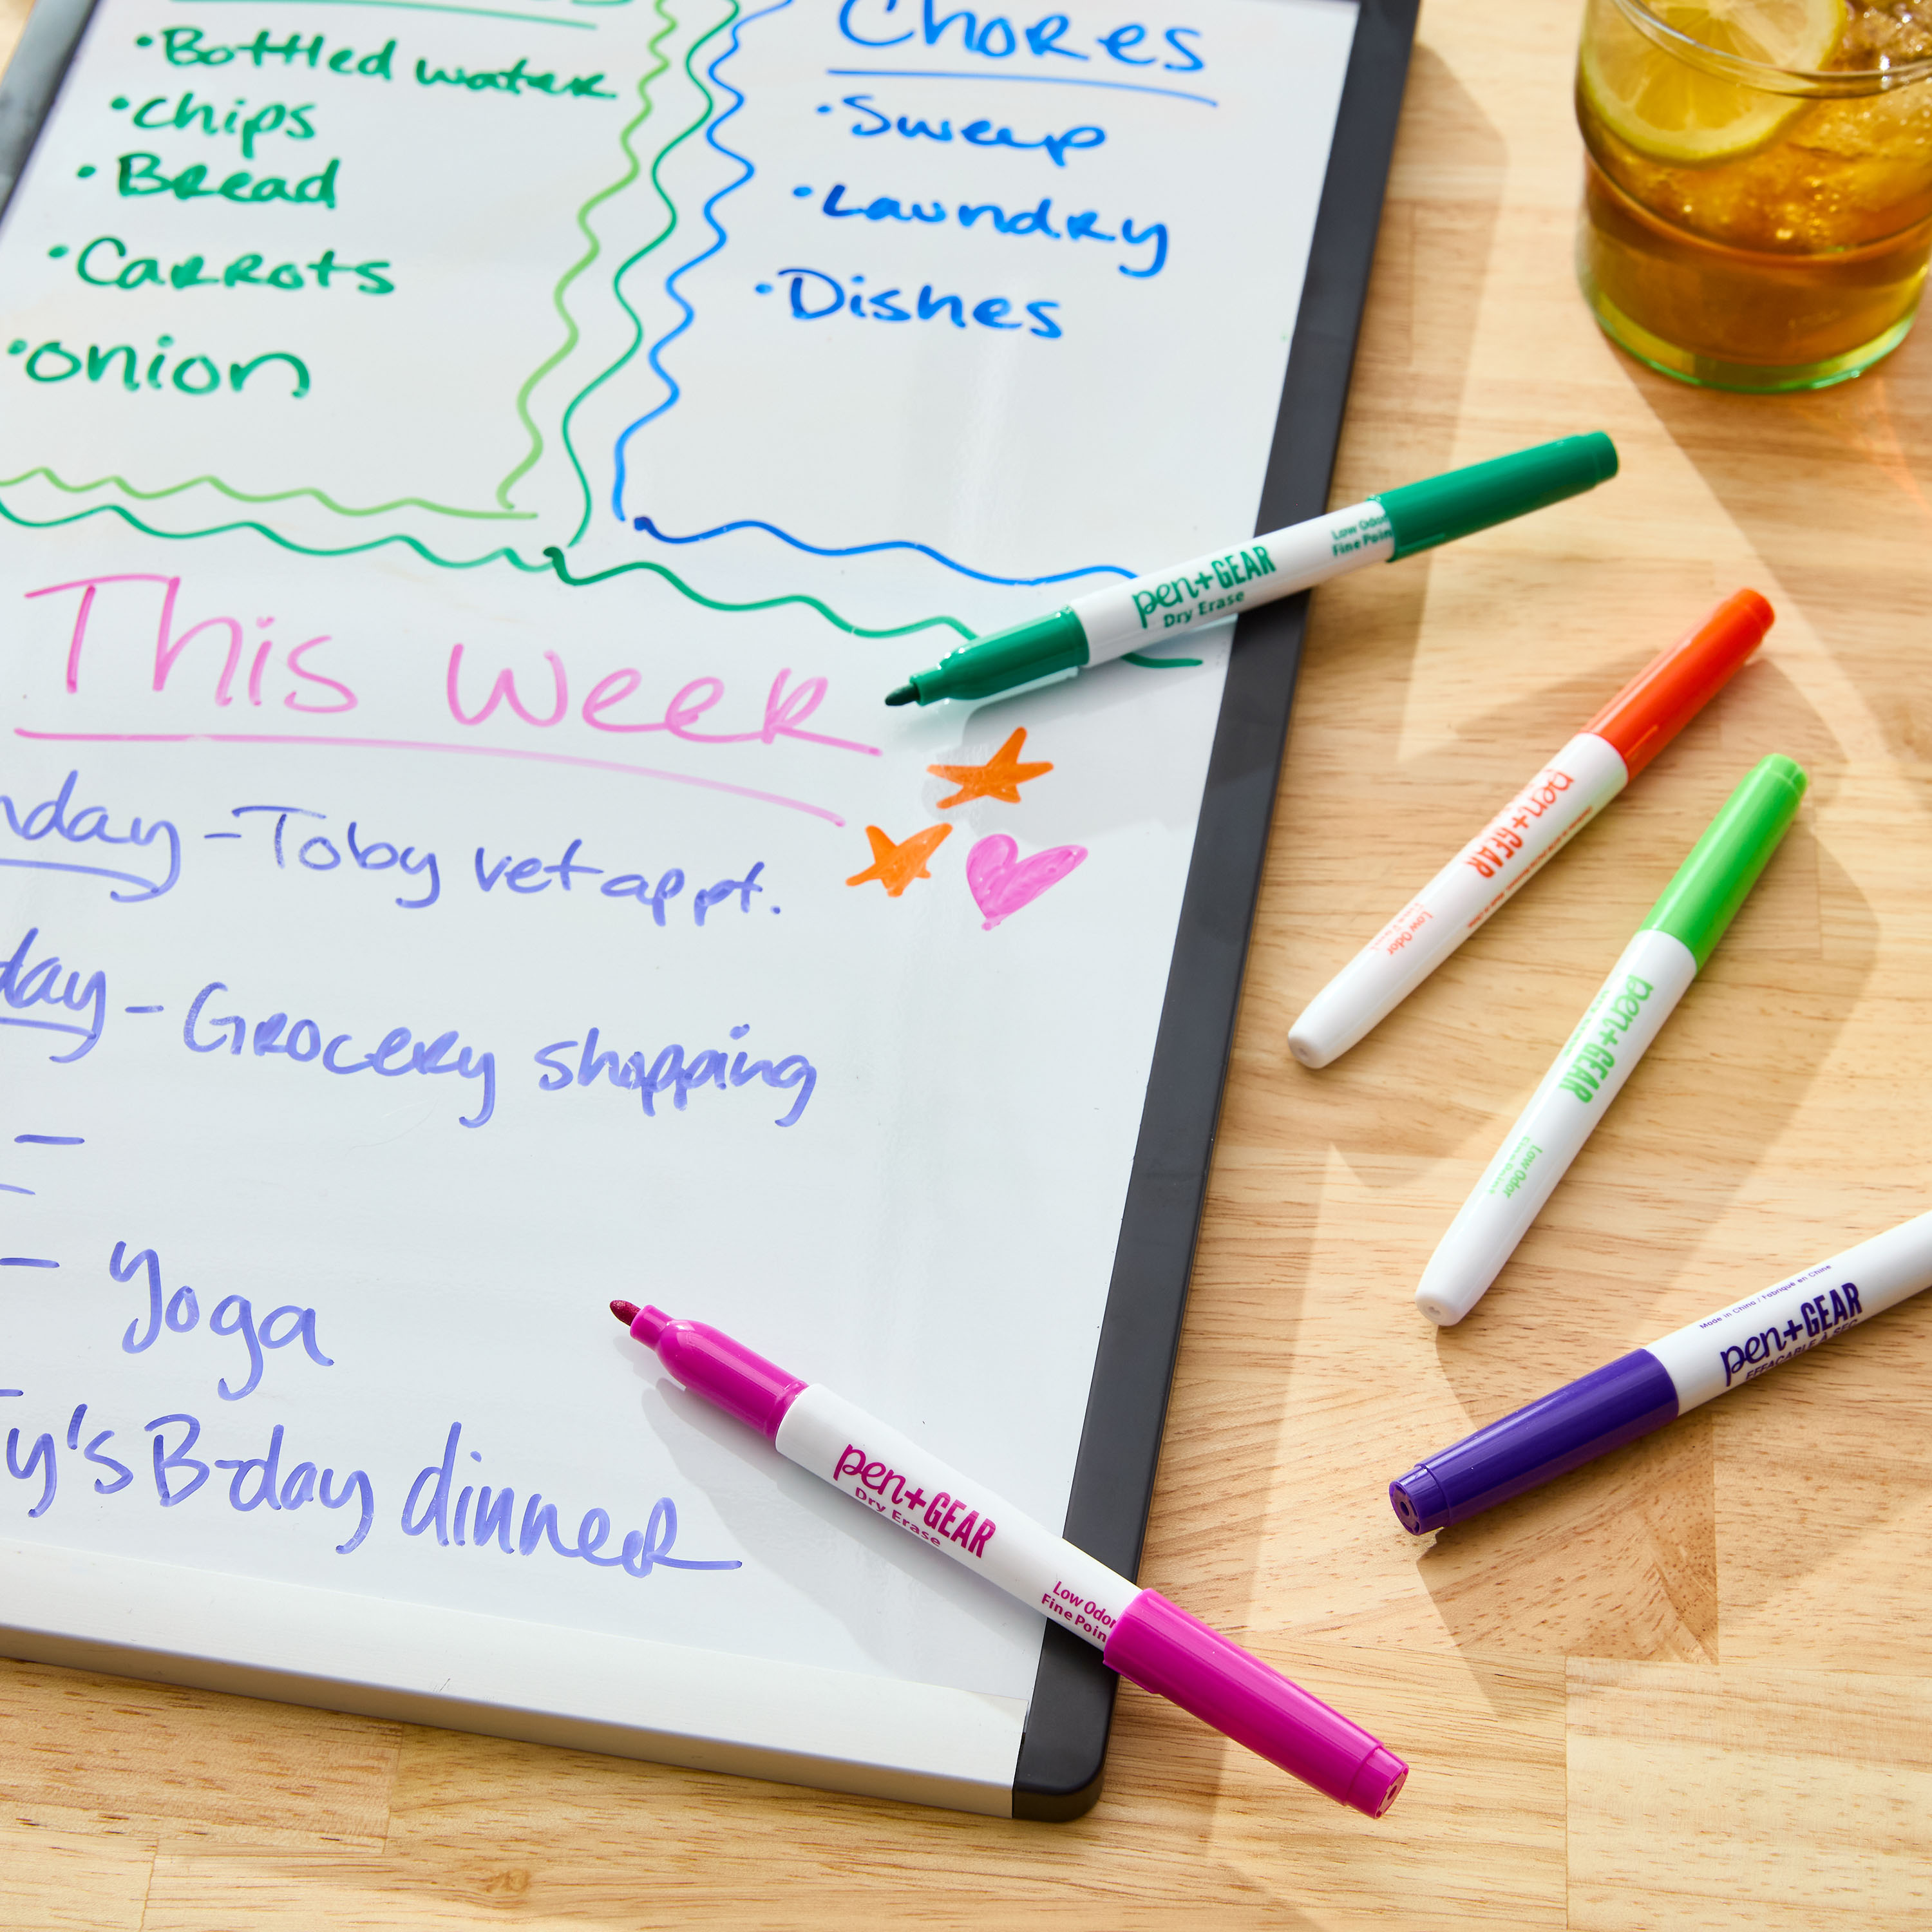 • Bottled water
• Chips
• Bread
• Carrots
• onion
Chores
• Sweep
• Laundry
• Dishes
This Week
- Toby vet appt.
- Grocery shopping
-
-
- Yoga
B-day dinner
pen+GEAR
Dry Erase
Low Odor
Fine Point
pen+GEAR
Low Odor
pen+GEAR
Low Odor
Made in China / Fabriqué en Chine
pen+GEAR
EFFAÇABLE À SEC
pen+GEAR
Dry Erase
Low Odor
Fine Point